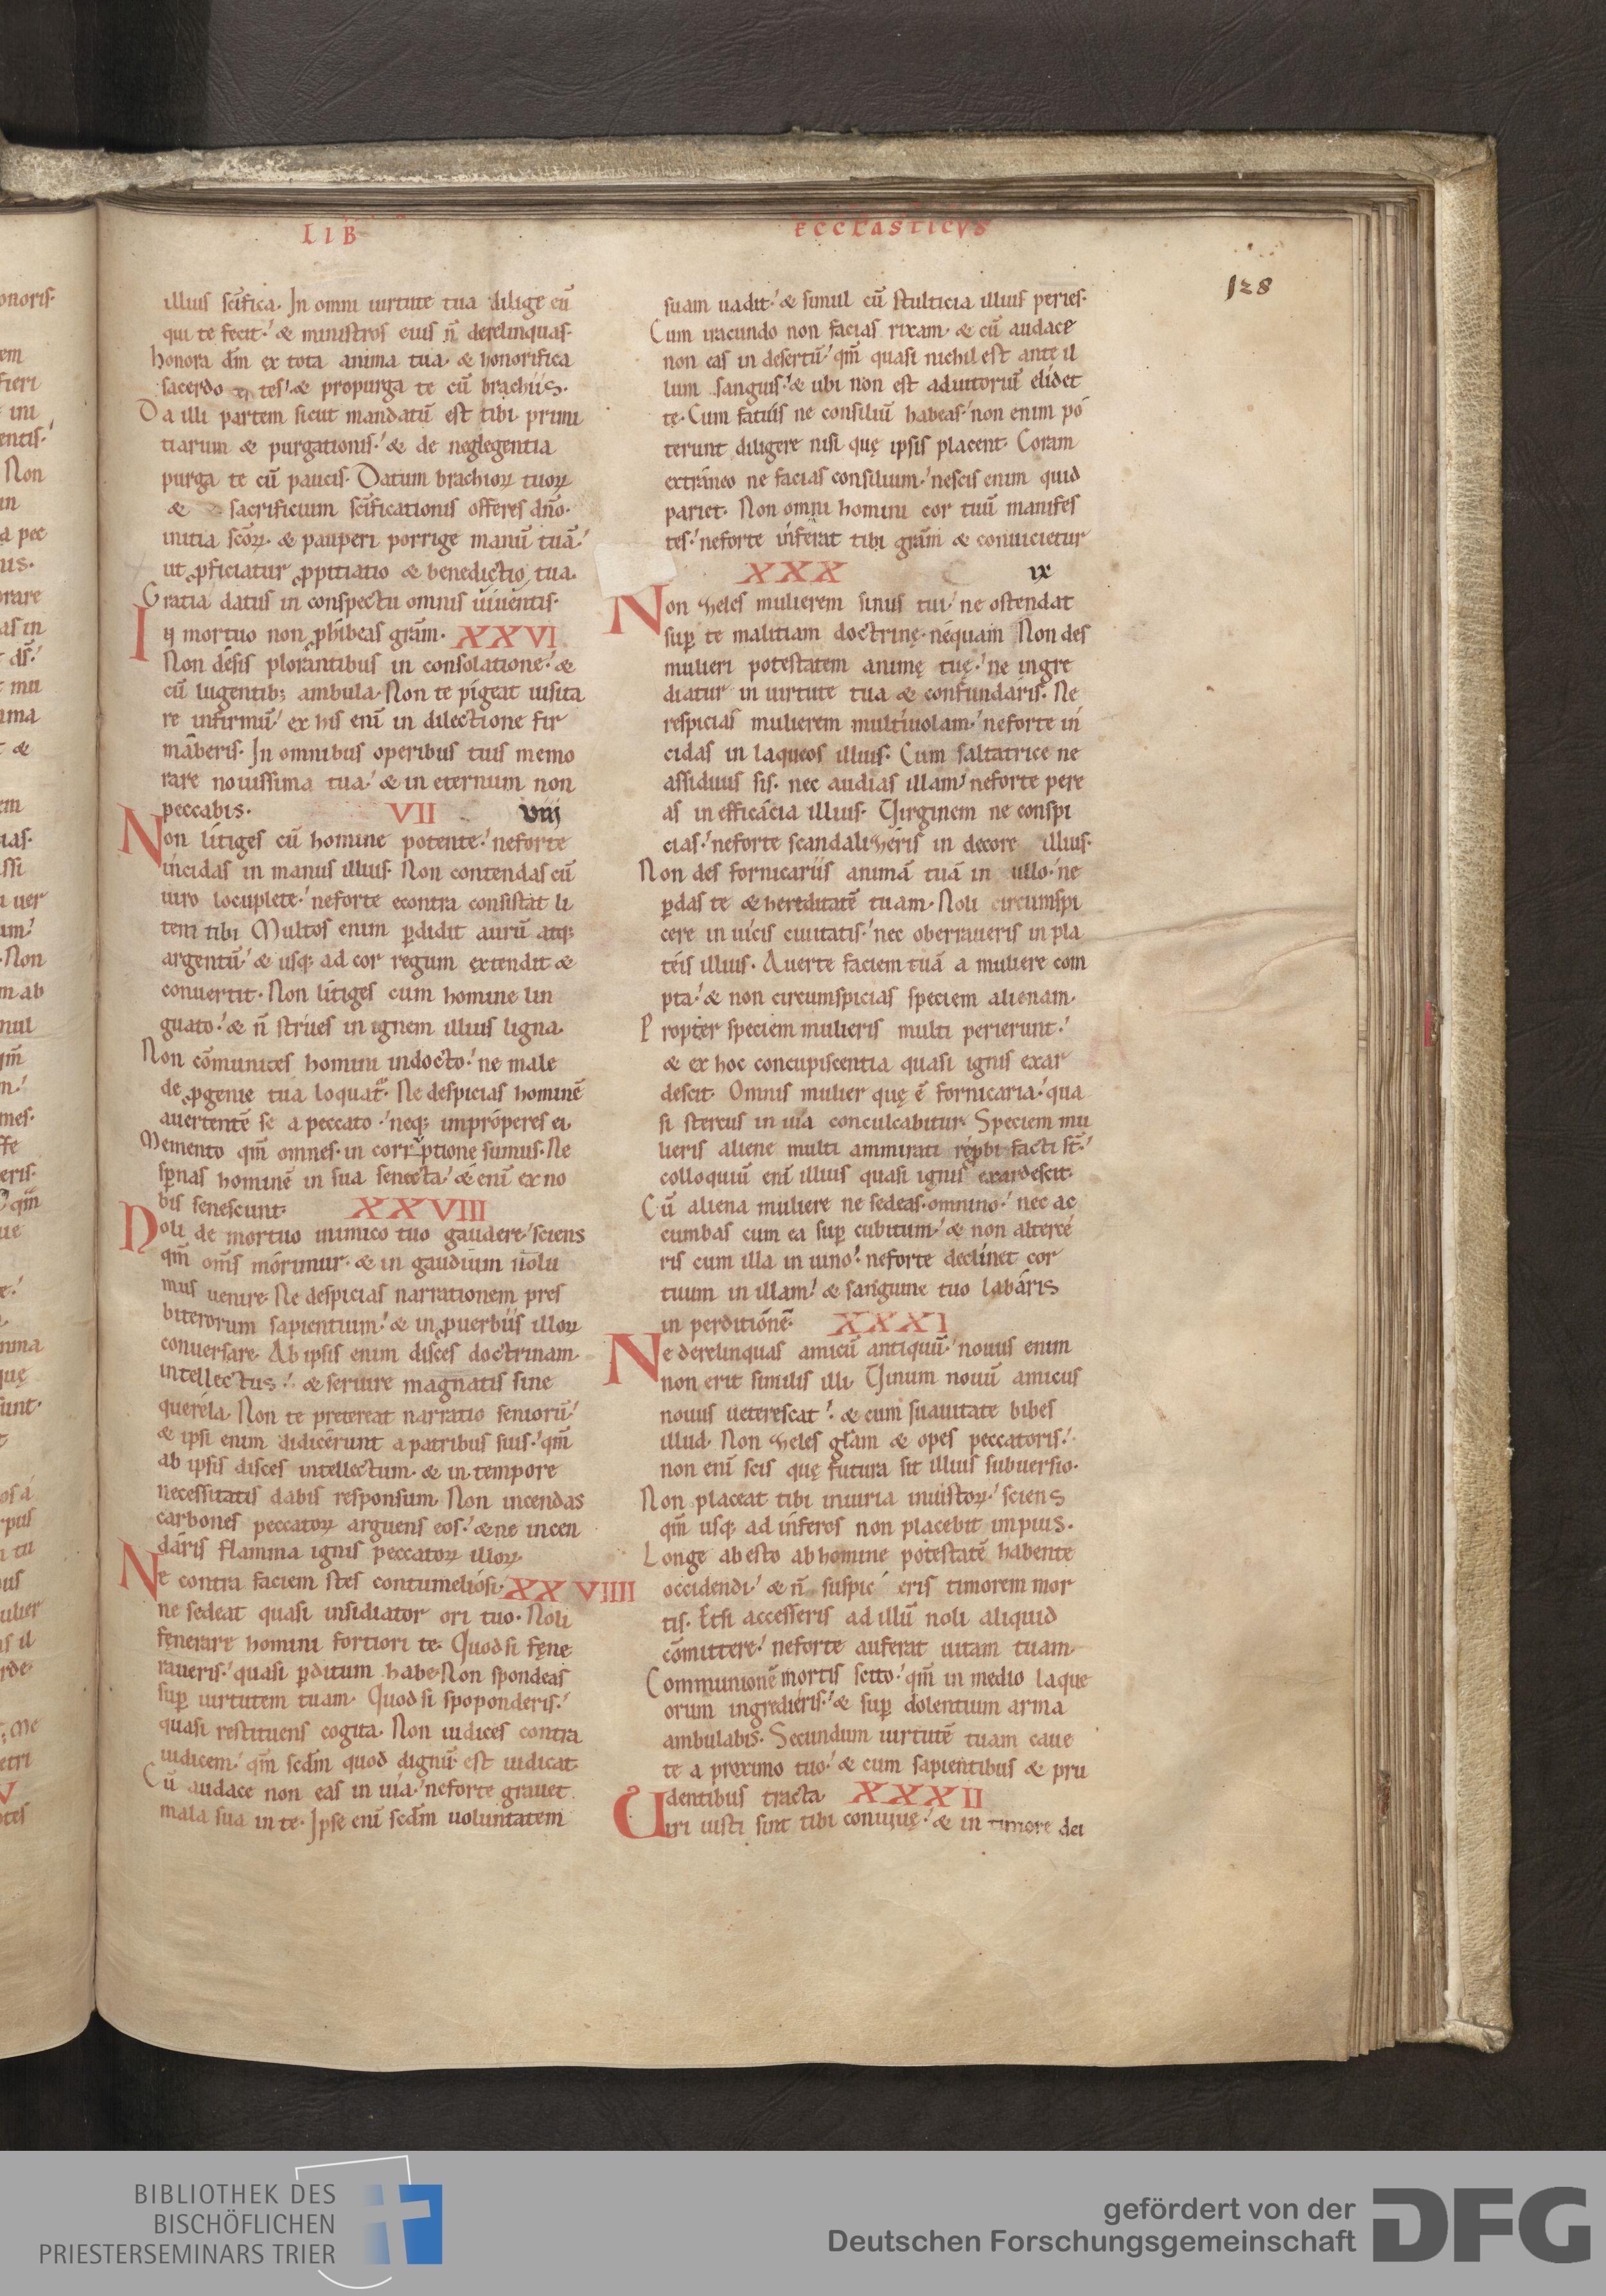 LIB
ECCLASTICVS
128
illius scifica. In omni uirtute tua dilige cū
qui te fecit. & ministros eius ñ derelinquas.
honora dm̄ ex tota anima tua. & honorifica
sacerdo tes. & propurga te cū brachiis.
Da illi partem sicut mandatū est tibi primi
tiarum & purgationis. & de neglegentia
purga te cū paucis. Datum brachioꝝ tuoꝝ
& sacrificium scificationis offeres dño.
initia scōꝝ. & pauperi porrige manū tuā.
ut ꝓficiatur ꝓpitiatio & benedictio tua.
Gratia datus in conspectu omnis uiuentis.
I
ij mortuo non ꝓhibeas gram̄. XXVI
Non désis plorantibus in consolatione. &
cū lugentib; ambula. Non te pigeat uisita
re infirmū. ex his enī in dilectione fir
mâberis. In omnibus operibus tuis memo
rare nouissima tua. & in eternum non
peccabis. VII viij
Non litiges cū homine potente. neforte
incidas in manus illius. Non contendas cū
uiro locuplete. neforte econtra consistat li
tem tibi Multos enim ꝑdidit aurū atq;
argentū. & usq; ad cor regum extendit &
conuertit. Non litiges cum homine lin
guato. & ñ strues in ignem illius ligna.
Non cōmunices homini indocto. ne male
de ꝓgenie tua loquat̄. Ne despicias hominē
auertentē se a peccato. neq; impróperes ei.
Memento qm̄ omnes in corrptione sumus. Ne
sꝑnas hominē in sua senecta. & enī ex no
bis senescunt. XXVIII
Noli de mortuo inimico tuo gaudere. sciens
qm̄ om̄s mórimur. & in gaudium nolu
mus uenire. Ne despicias narrationem pres
biterorum sapientium. & in ꝓuerbiis illoꝝ
conuersare. Ab ipsis enim disces doctrinam
intellectus. & seruire magnatis sine
queréla. Non te pretereat narratio seniorū.
& ipsi enim didicérunt a patribus suis. qm̄
ab ipsis disces intellectum. & in tempore
necessitatis dabis responsum. Non incendas
carbones peccatoꝝ arguens eos. & ne incen
dáris flamma ignis peccatoꝝ illoꝝ.
Ne contra faciem stes contumeliósi. XXVIIII
ne sedeat quasi insidiator ori tuo. Noli
fęnerare homini fortiori te. Quod si fęne
raueris. quasi ꝑditum habe. Non spondeas
suꝑ uirtutem tuam. Quod si spoponderis.
quasi restituens cogita. Non iudices contra
iudicem. qm̄ scdm̄ quod dignū est iudicat.
Cū audace non eas in uia. neforte grauet
mala sua in te. Ipse enī scdm̄ uoluntatem
suam uadit. & simul cū stulticia illius peries.
Cum iracundo non facias rixam. & cū audace
non eas in desertū. qm̄ quasi nichil est ante il
lum sanguis. & ubi non est adiutoriū elidet
te. Cum fatuis ne consiliū habeas. non enim po
terunt diligere nisi quę ipsis placent. Coram
extráneo ne facias consilium. nescis enim quid
pariet. Non omni homini cor tuū manifes
tes. neforte inferat tibi gram̄ & conuicietur
XXX ix
Non zeles mulierem sinus tui. ne ostendat
suꝑ te malitiam doctrinę nequam Non des
mulieri potestatem animę tuę. ne ingre
diatur in uirtute tua & confundáris. Ne
respicias mulierem multiuolam. neforte in
cidas in laqueos illius. Cum saltatrice ne
assiduus sis. nec audias illam. neforte pere
as in efficácia illius. Uirginem ne conspi
cias. neforte scandalizéris in decore illius.
Non des fornicariis animā tuā in ullo. ne
ꝑdas te & hereditatē tuam. Noli circumspi
cere in uicis ciuitatis. nec oberraueris in pla
téis illius. Auerte faciem tuā a muliere com
pta. & non circumspicias speciem alienam.
Propter speciem mulieris multi perierunt.
& ex hoc concupiscentia quasi ignis exar
descit. Omnis mulier quę ē fornicaria. qua
si stercus in uia conculcabitur. Speciem mu
lieris aliene multi ammirati reꝓbi facti st̄.
colloquiū enī illius quasi ignis exardescit.
Cū aliena muliere ne sedeas omnino. nec ac
cumbas cum ea suꝑ cubitum. & non alterce
ris cum illa in uino. neforte declinet cor
tuum in illam. & sanguine tuo labáris
in perditiónē. XXXI
Ne derelinquas amicū antiquū. nouus enim
non erit similis illi. Uinum nouū amicus
nouus ueterescat. & cum suauitate bibes
illud. Non zeles glam̄ & opes peccatoris.
non enī scis quę futura sit illius subuersio.
Non placeat tibi iniuria iniustoꝝ. sciens
qm̄ usq; ad inferos non placebit impius.
Longe abesto ab homine potestatē habente
occidendi. & ñ suspic eris timorem mor
tis. Etsi accesseris ad illū noli aliquid
cōmittere. neforte auferat uitam tuam.
Communionē mortis scito. qm̄ in medio laque
orum ingredieris. & suꝑ dolentium arma
ambulabis. Secundum uirtutē tuam caue
te a proximo tuo. & cum sapientibus & pru
dentibus tracta. XXXII
Uiri iusti sint tibi conuiuę. & in timore dei
BIBLIOTHEK DES
BISCHÖFLICHEN
PRIESTERSEMINARS TRIER
gefördert von der
Deutschen Forschungsgemeinschaft
DFG